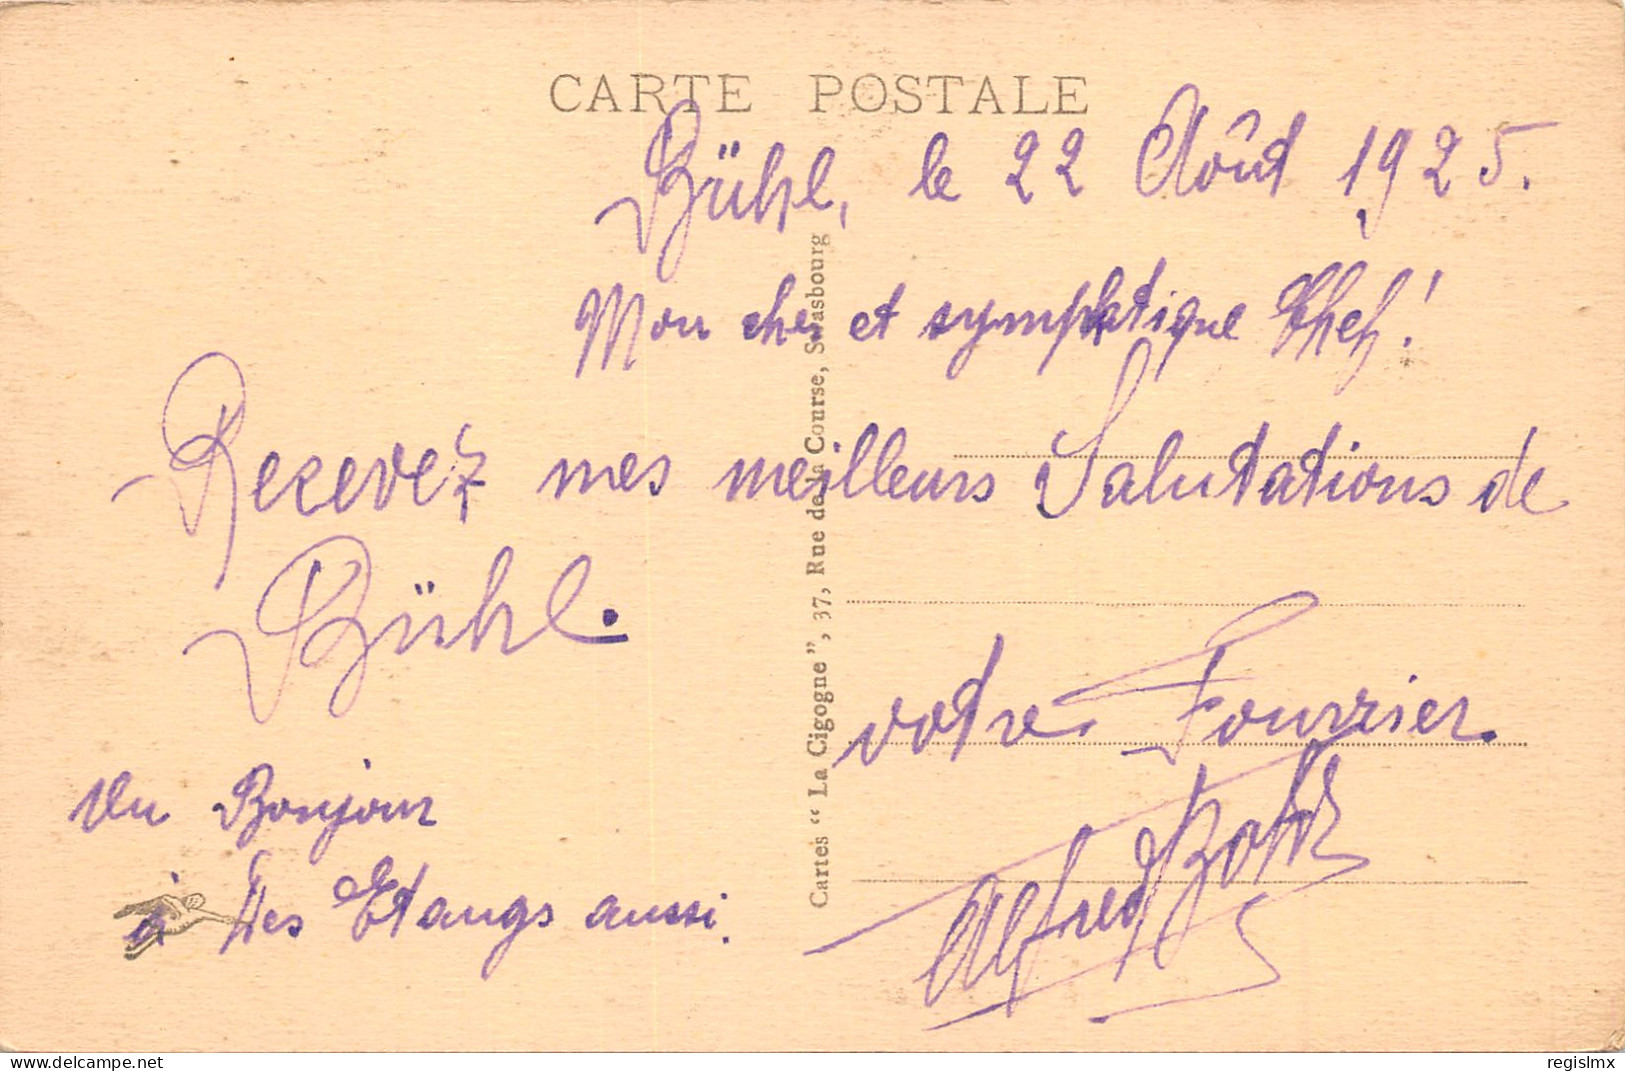 CARTE POSTALE
Bühl, le 22 Août 1925.
Mon cher et symphatique Chef!
Recevez mes meilleurs Salutations de
Bühl.
votre Fourrier.
Alfred
Un Bonjour
à Des Etangs aussi.
Cartes “ La Cigogne ”, 37, Rue de la Course, Strasbourg
www.delcampe.net
regislmx